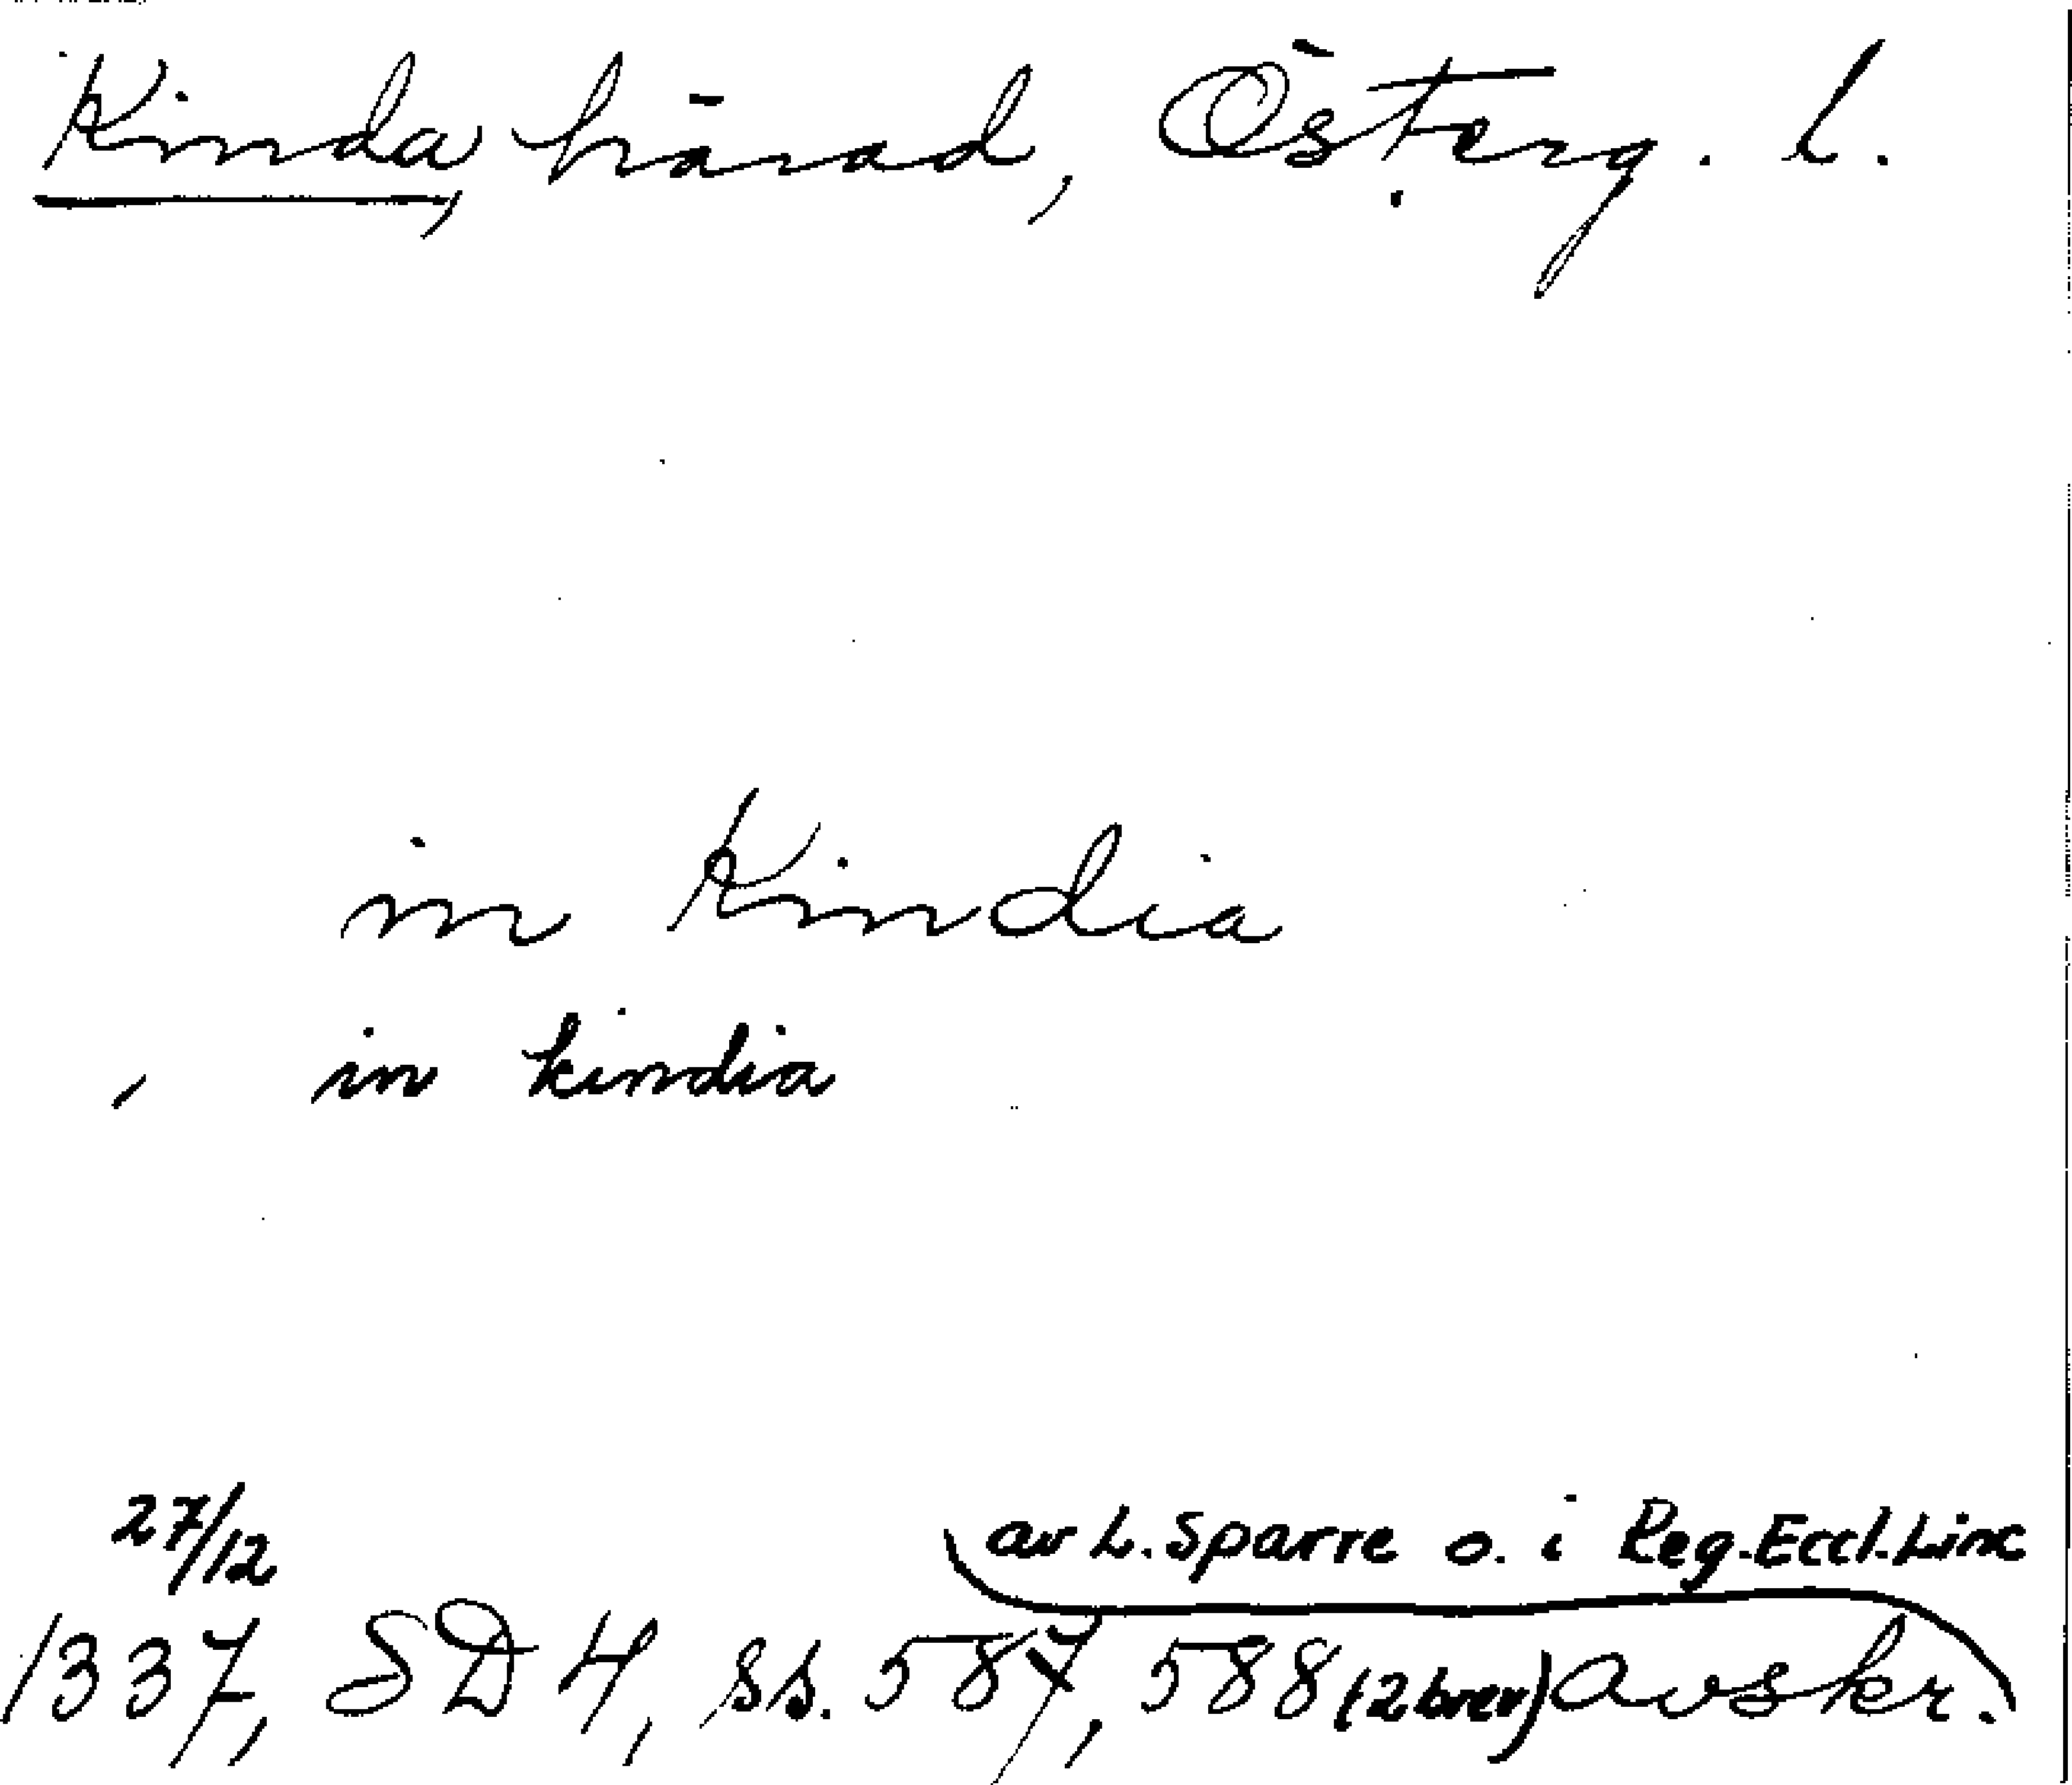 Kinda, härad, Österg. l.
in Kindia
, in kindia
27/12
av L. Sparre o. i Reg. Eccl. Linc
1337, SD 4, ss. 587, 588 (2 brev) Avskr.